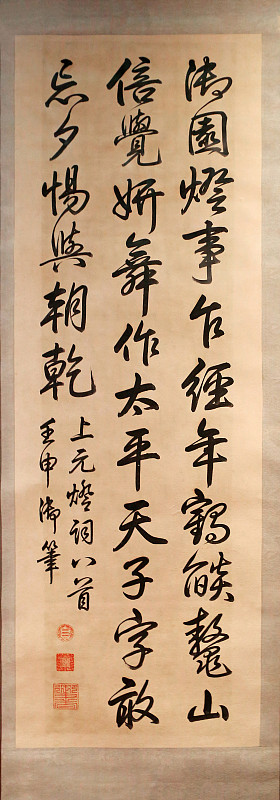 御園燈事乍經年鶴燄鰲山
倍覺妍舞作太平天子字敢
忘夕惕與朝乾
上元燈詞八首
壬申御筆